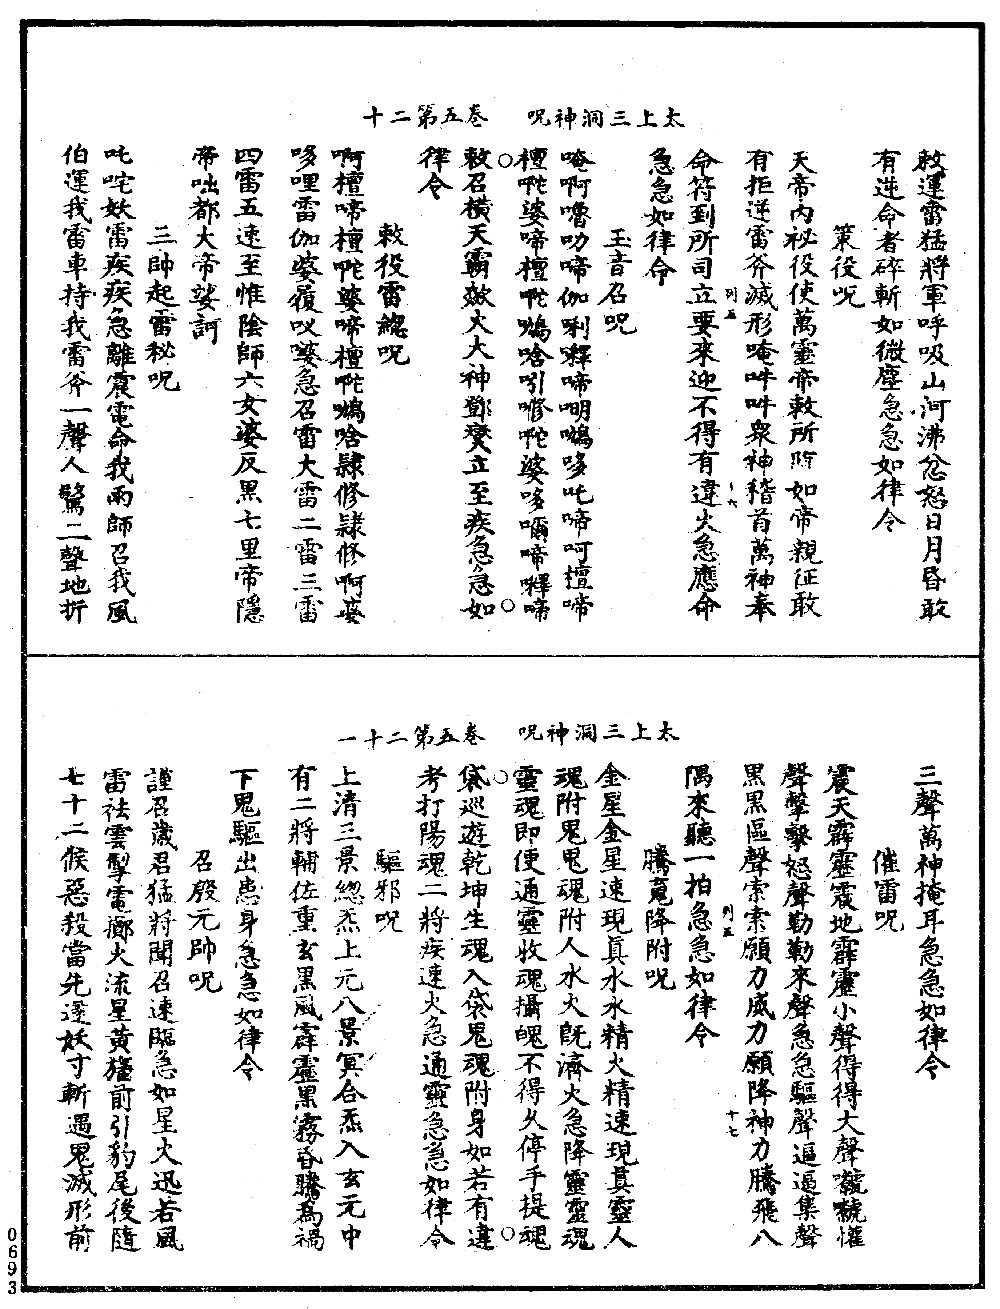 太上三洞神呪　卷五第二十
敕運雷猛將軍呼吸山河沸忿怒日月昏敢
有逆命者碎斬如微塵急急如律令
策役呪
天帝內祕役使萬靈帝敕所降如帝親征敢
有拒逆雷斧滅形唵吽吽衆神稽首萬神奉
列五
十六
命符到所司立要來迎不得有違火急應命
急急如律令
玉音召呪
唵啊嚕叻啼伽唎釋啼𠵇鴆哆吒啼呵檀啼
檀𠰷婆啼檀𠰷鴆唅吲修𠰷婆哆囉啼釋啼
敕召橫天霸欻火大神鄧燮立至疾急急如
律令
敕役雷總呪
啊檀啼檀𠰷婆啼檀𠰷鴆唅隸修隸修啊娑
哆哩雷伽婆履㕥婆急召雷大雷二雷三雷
四雷五速至惟陰師六女婆反黑七里帝隱
帝咄都大帝娑訶
三帥起雷秘呪
吒咤妖雷疾疾急離震電命我雨師召我風
伯運我雷車持我雷斧一聲人驚二聲地折
太上三洞神呪　卷五第二十一
三聲萬神掩耳急急如律令
催雷呪
震天霹靂震地霹靂小聲得得大聲虩虩懽
聲擊擊怒聲勒勒來聲急急驅聲逼逼集聲
黑黑區聲索索願力威力願降神力騰飛八
列五
十七
隅來聽一拍急急如律令
騰魂降附呪
金星金星速現眞水水精火精速現眞靈人
魂附鬼鬼魂附人水火旣濟火急降靈靈魂
靈魂即便通靈收魂攝魄不得久停手提魂
袋巡遊乾坤生魂入袋鬼魂附身如若有違
考打陽魂二將疾速火急通靈急急如律令
驅邪呪
上清三景總炁上元八景冥合炁入玄元中
有二將輔佐重玄黑風霹靂黑霧昏騰爲禍
下鬼驅出患身急急如律令
召殷元帥呪
謹召歲君猛將聞召速臨急如星火迅若風
雷袪雲掣電擲火流星黃旛前引豹尾後隨
七十二候惡殺當先逢妖寸斬遇鬼滅形前
0693